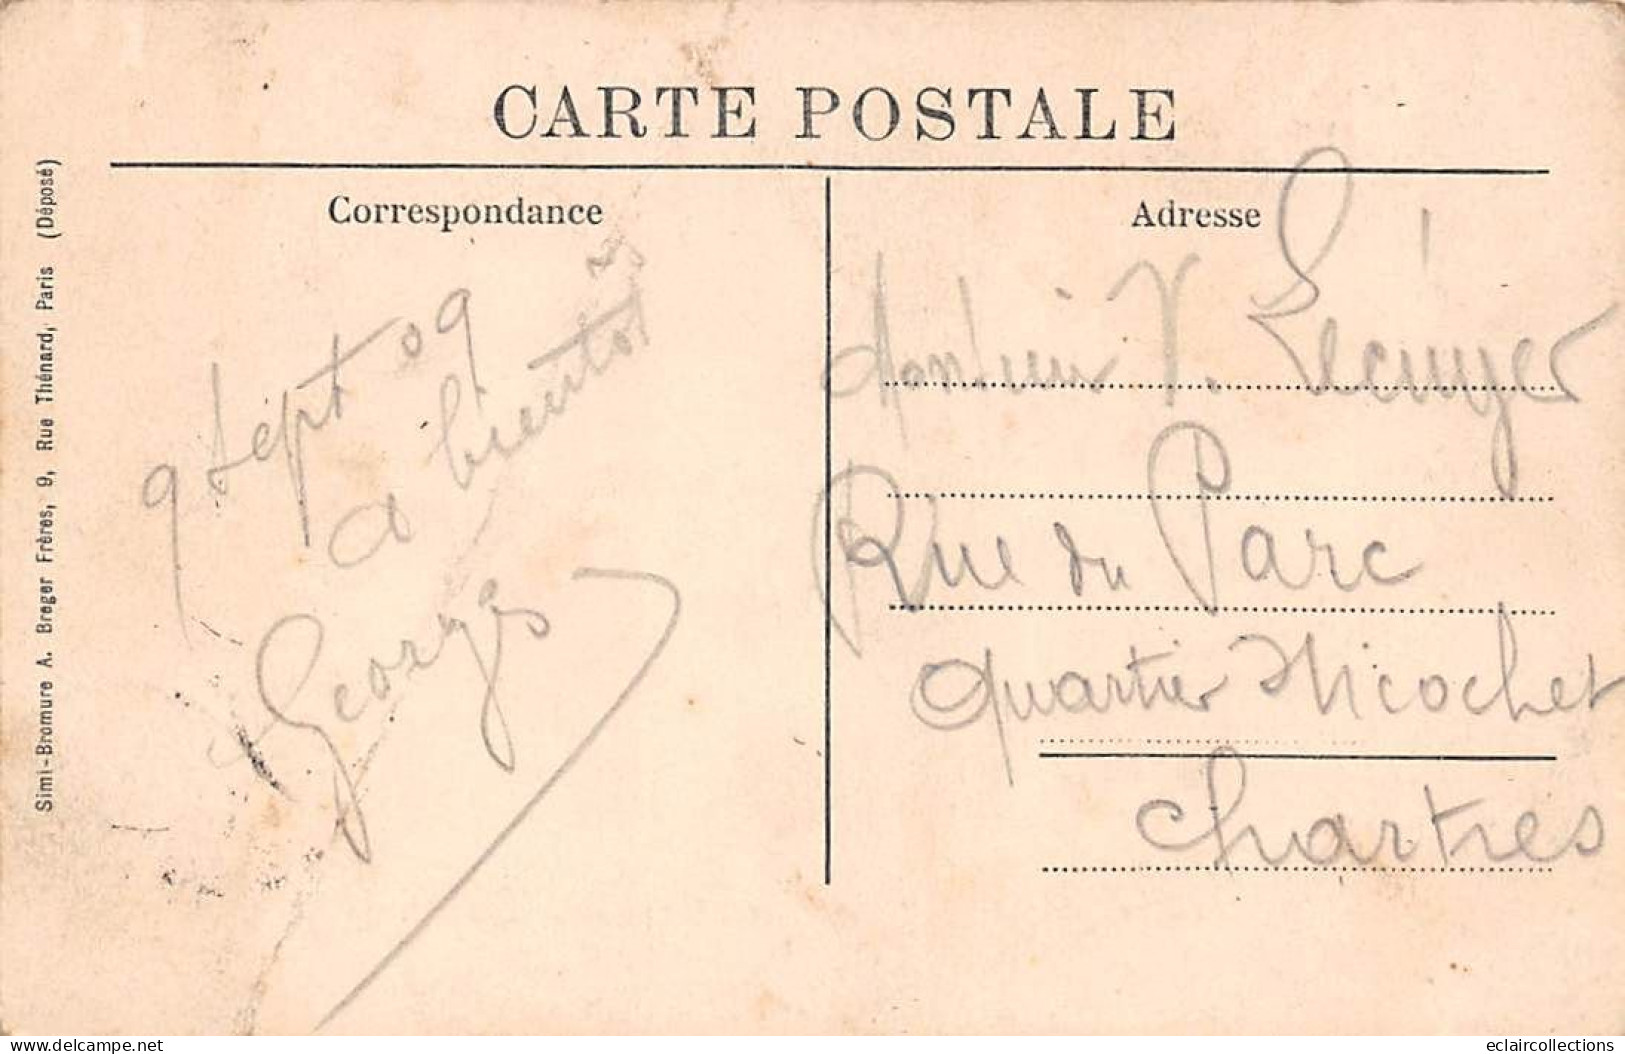 CARTE POSTALE
Correspondance
9 Sept 09
a bientot
Georges
Adresse
Monsieur V. Lécuyer
Rue du Parc
Quartier Nicochet
Chartres
Simi-Bromure A. Breger Frères, 9, Rue Thénard, Paris (Déposé)
www.delcampe.net
eclaircollections